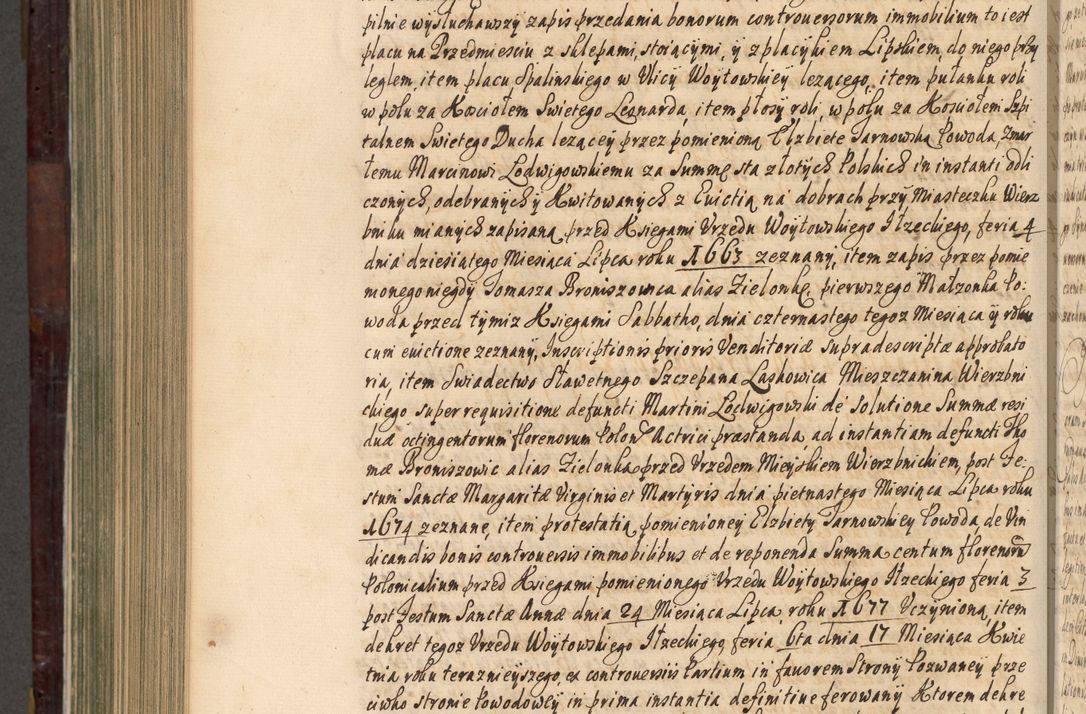 pilnie wysłuchawszy zapis przedania bonorum controversorum immobilium to iest
placu na Przedmiesciu z sklepami, stoiącymi, y z placykiem Lipskiem, do niego przy
ległem, item placu Spalinskiego w Ulicy Woytowskiey lezącego, item pułanku roli
w polu za Kosciołem Swietego Leonarda, item płosy roli, w polu za Kosciołem Szpi
talnem Swietego Ducha lezącey przez pomienioną Elzbiete Tarnowską Powoda, zmar
łemu Marcinowi Lodwigowskiemu za Summę sta złotych Polskich in instanti odli
czonych, odebranych y Kwitowanych z Euictią na dobrach przy Miasteczku Wierz
bniku mianych zapisaną przed Ksiegami Urzedu Woytowskiego Iłzeckiego, feria 4
dnia dziesiątego Miesiąca Lipca roku 1663 zeznany, item zapis przez pomie
monego niegdy Tomasza Broniszowica alias Zielonkę, pierwszego Małzonka Po:
woda przed tymiz Ksiegami Sabbatho, dnia czternastego tegoz Miesiąca y roku
cum euictione zeznany, Inscriptionis prioris Venditoriæ supradescriptæ approbato
ria, item Swiadectwo Sławetnego Szczepana Laskowica Mieszczanina Wierzbni
ckiego super requisitione defuncti Martini Lodwigowski de solutione Summæ resi
duæ octingentorum florenorum Polon Actrici præstanda, ad instantiam defuncti Tho
mæ Broniszowic alias Zielonka przed Urzedem Mieyskiem Wierzbnickiem, post Fe:
stum Sanctæ Margaritæ Virginis et Martyris dnia pietnastego Miesiąca Lipca roku
1674 zeznane, item protestatia, pomienioney Elzbiety Tarnowskiey Powoda, de Ven
dicandis bonis controuersis immobilibus et de reponenda Summa centum florenoru
Polonicalium przed Ksiegami pomienionego Urzedu Woytowskiego Iłzeckiego feria 3
post Festum Sanctæ Annæ dnia 24 Miesiąca Lipca, roku 1677 Uczyniona, item
dekret tegoz Urzedu Woytowskiego Iłzeckiego, feria 6ta dnia 17 Miesiąca Kwie
tnia roku teraznieyszego, ex controuersii Partium in fauorem Strony Pozwaney prze
ciwko stronie Powodowey in prima instantia definitiue ferowany Ktorem dekre